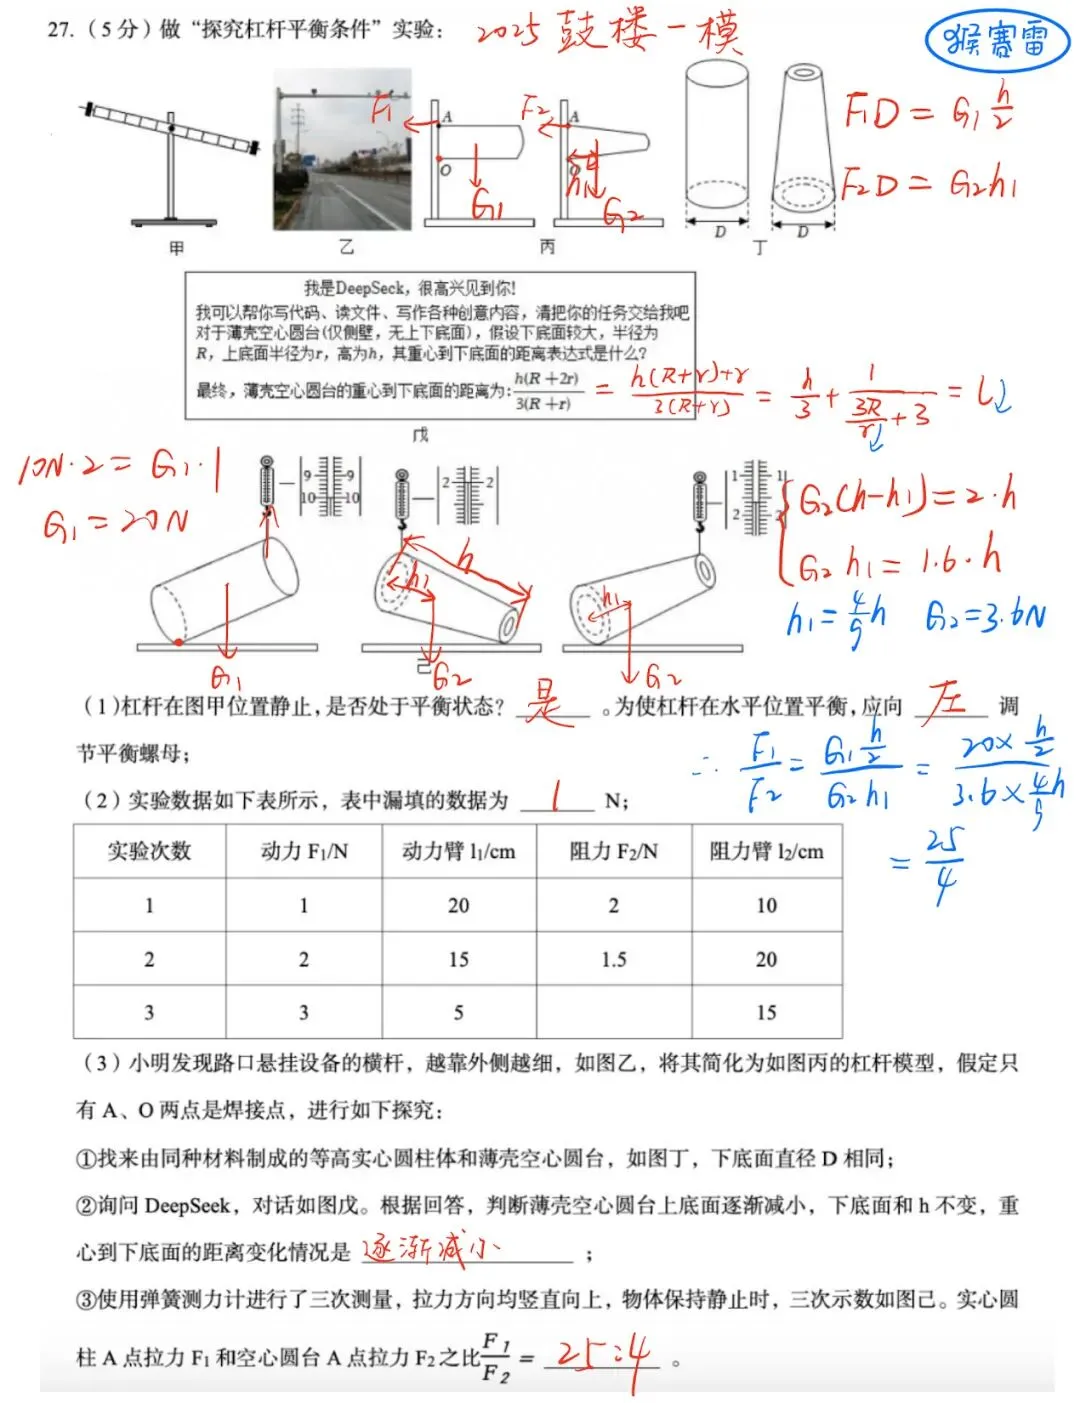 27.（5分）做“探究杠杆平衡条件”实验：
2025鼓楼一模
猴赛雷
F₁ A O G₁
F₂ A O h₁ G₂
D D
甲 乙 丙 丁
F₁D = G₁ h/2
F₂D = G₂h₁
我是DeepSeck，很高兴见到你!
我可以帮你写代码、读文件、写作各种创意内容，清把你的任务交给我吧
对于薄壳空心圆台(仅侧壁，无上下底面)，假设下底面较大，半径为
R，上底面半径为r，高为h，其重心到下底面的距离表达式是什么?
最终，薄壳空心圆台的重心到下底面的距离为: h(R+2r)/3(R+r) = h(R+r)+r/3(R+r) = h/3 + 1/(3R/r+3) = L↓
戊
10N·2 = G₁·1
G₁ = 20N
9 9
10 10
2 2
1 1
2 2
G₂(h-h₁) = 2·h
G₂h₁ = 1.6·h
h₁ = 4/9 h G₂ = 3.6N
h h₁ h₁
G₁ 己 G₂ G₂
（1)杠杆在图甲位置静止，是否处于平衡状态? 是 。为使杠杆在水平位置平衡，应向 左 调
节平衡螺母；
∴ F₁/F₂ = G₁ h/2 / G₂h₁ = 20× h/2 / 3.6× 4/9 h
= 25/4
（2）实验数据如下表所示，表中漏填的数据为 1 N；
实验次数 动力 F₁/N 动力臂 l₁/cm 阻力 F₂/N 阻力臂 l₂/cm
1 1 20 2 10
2 2 15 1.5 20
3 3 5 15
（3）小明发现路口悬挂设备的横杆，越靠外侧越细，如图乙，将其简化为如图丙的杠杆模型，假定只
有 A、O 两点是焊接点，进行如下探究：
①找来由同种材料制成的等高实心圆柱体和薄壳空心圆台，如图丁，下底面直径 D 相同；
②询问 DeepSeek，对话如图戊。根据回答，判断薄壳空心圆台上底面逐渐减小，下底面和 h 不变，重
心到下底面的距离变化情况是 逐渐减小 ；
③使用弹簧测力计进行了三次测量，拉力方向均竖直向上，物体保持静止时，三次示数如图己。实心圆
柱 A 点拉力 F₁ 和空心圆台 A 点拉力 F₂ 之比 F₁/F₂ = 25:4 。